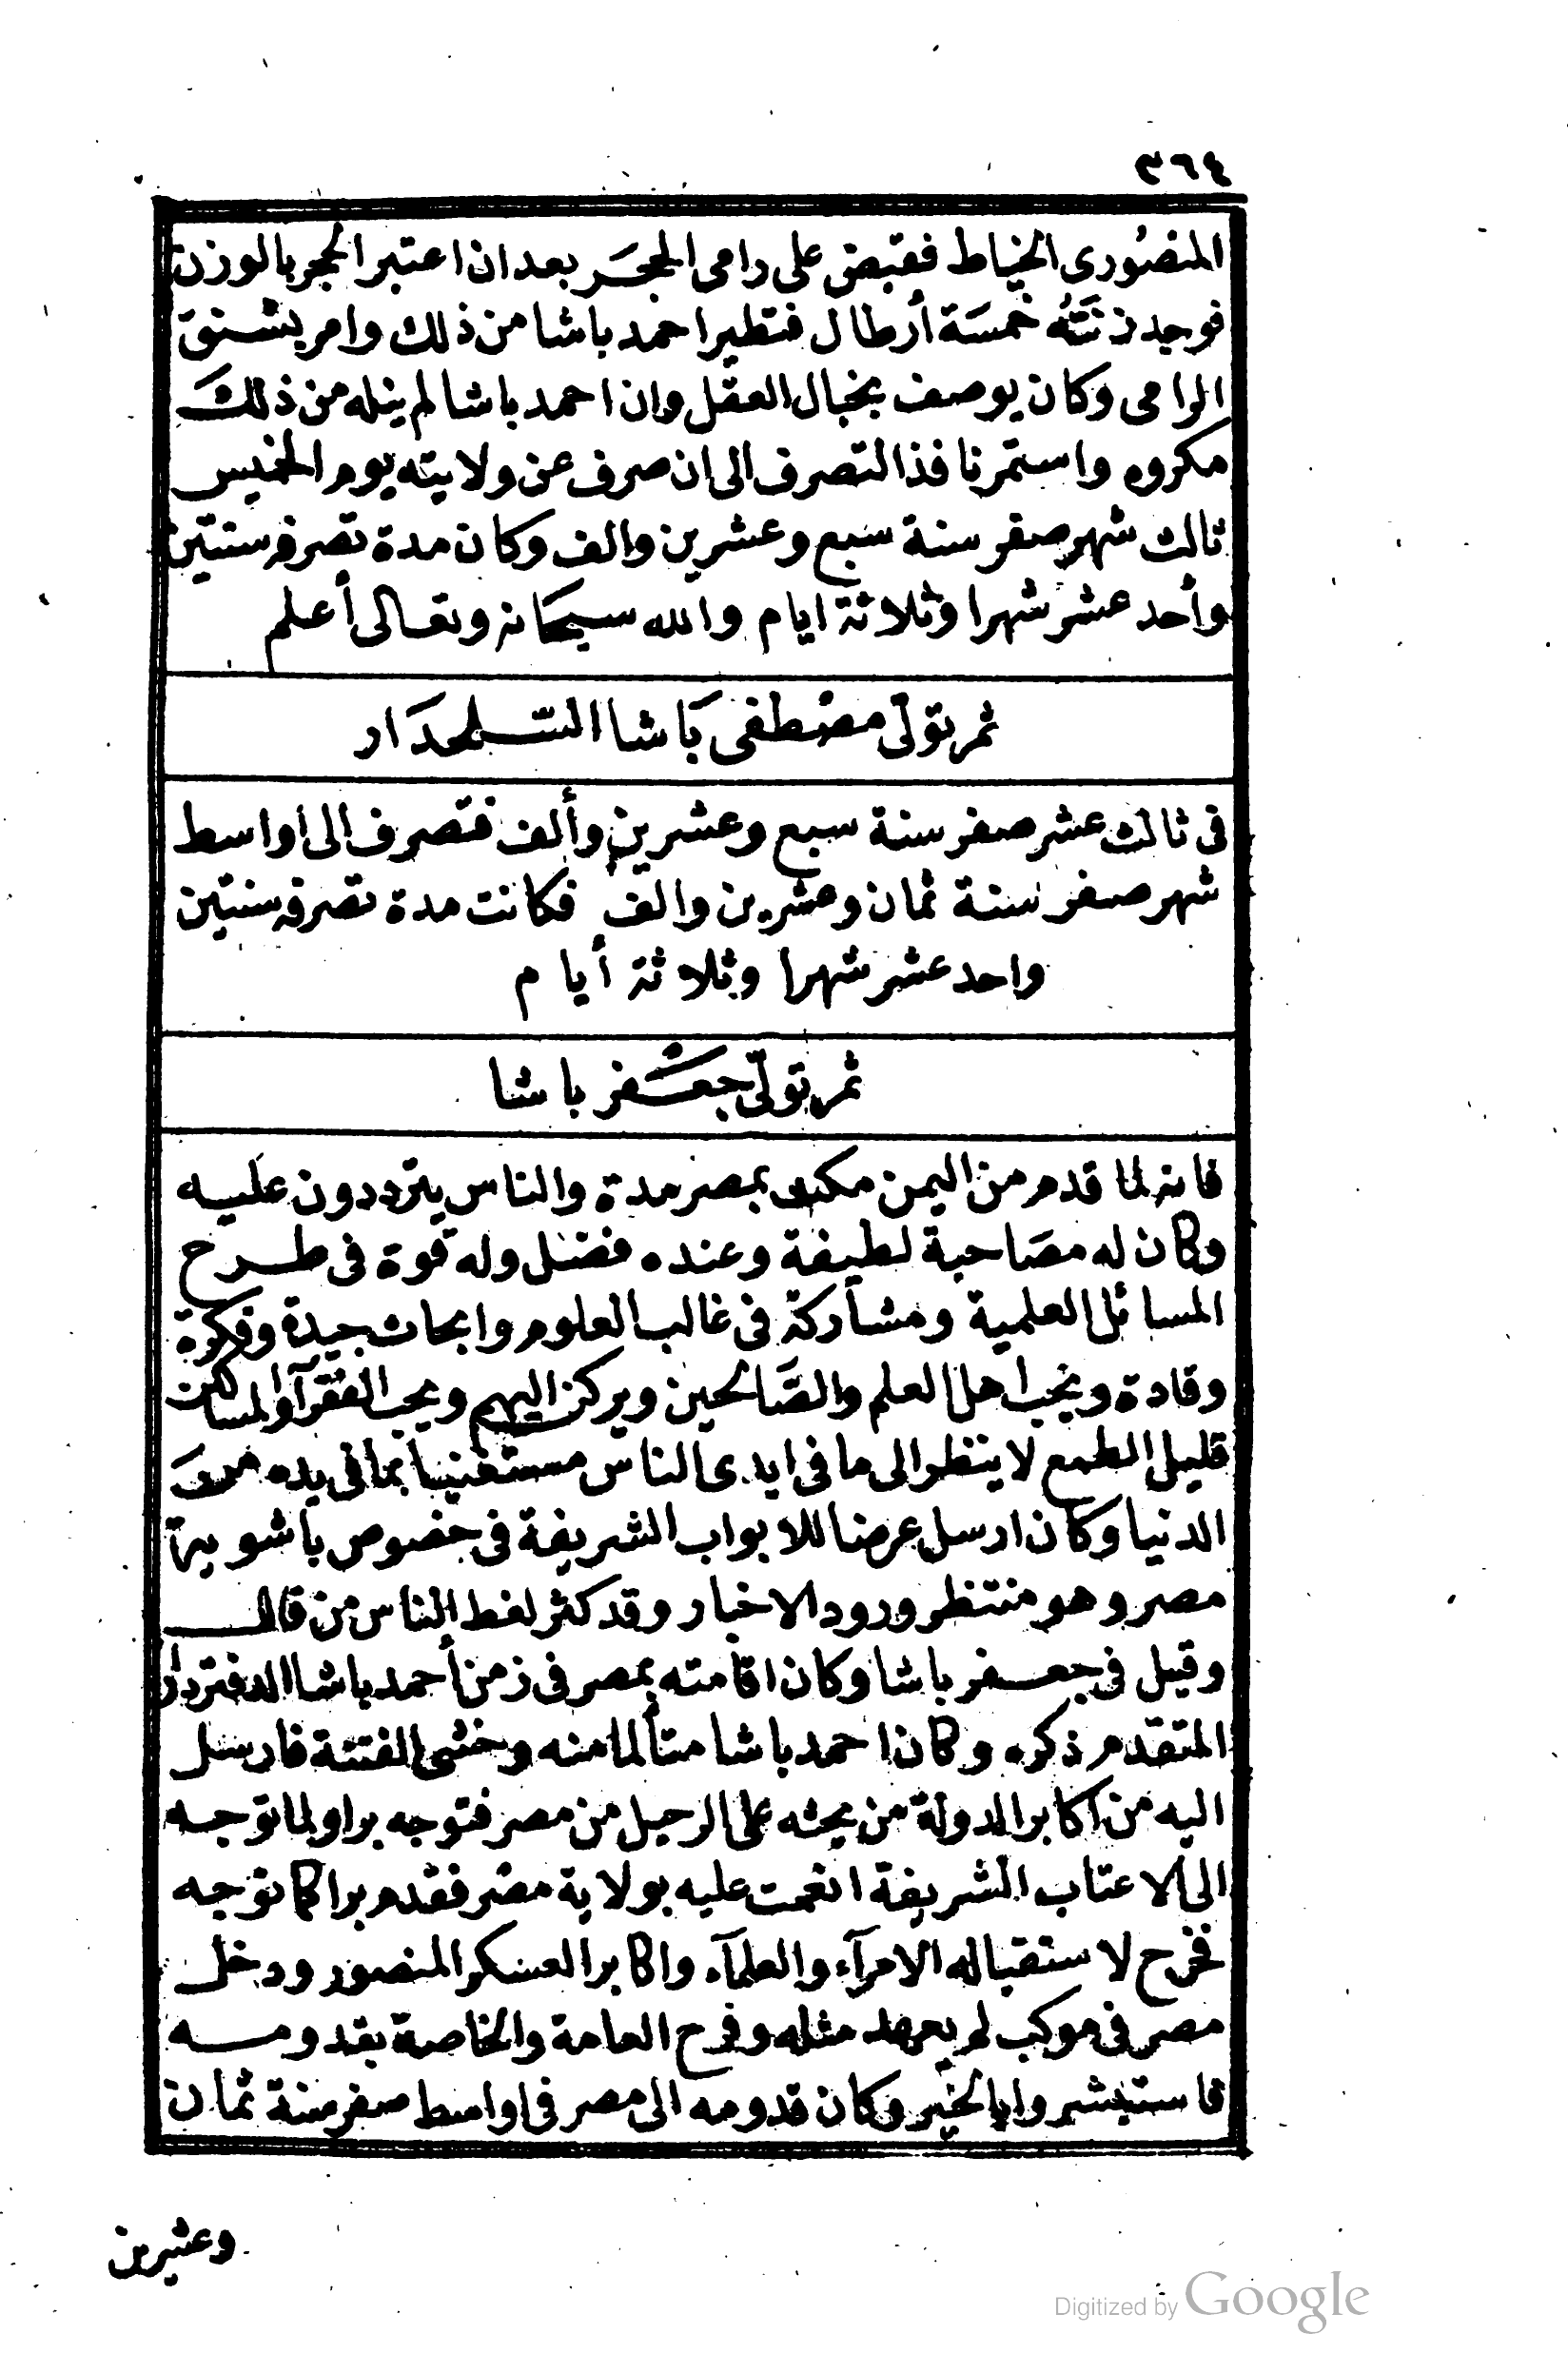 ٣٦٤
المنصُورى الخياط فقبض على رامى الحجَر بعد ان اعتبر الحجر بالوزن
فوجد زنَتَهُ خمسَة أرطال فتطير احمد باشا من ذلك وامر بشنق
الرامى وكان يوصف بخبال العقل وان احمد باشا لم ينله من ذلكَ
مكروه واستمر نافذ التصرف الى ان صرف عن ولايته يوم الخميس
ثالث شهر صفر سنة سبع وعشرين والف وكان مدة تصرفه سنتين
وأحد عشر شهرا وثلاثة ايام والله سبحانه وتعالى أعلم
ثم تولّى مصْطفى بَاشا السّلحدَار
فى ثالث عشر صفر سنة سبع وعشرين وألف فتصرف الى اواسط
شهر صفر سنة ثمان وعشرين والف فكانت مدة تصرفه سنتين
واحد عشر شهرا وثلاثة أيام
ثم تولّى جعْفر باشا
فانه لما قدم من اليمن مكث بمصر مدة والناس يترددون عليه
وكان له مصَاحبة لطيفة وعنده فضل وله قوة فى طرح
المسائل العلمية ومشاركة فى غالب العلوم وابحاث جيدة وفكرة
وقادة ويحب اهل العلم والصَّالحين ويركن اليهم ويحب الفقرآ والمساكين
قليل الطمع لا ينظر الى ما فى ايدى الناس مستغنيا بما فى يده منَ
الدنيا وكان ارسل عرضا للابواب الشريفة فى خصوص باشوية
مصر وهو منتظر ورود الاخبار وقد كثر لغط الناس من قال
وقيل فى جعفر باشا وكان اقامته بمصر فى زمن أحمد باشا الدفتردار
المتقدم ذكره وكان احمد باشا متألما منه وخشى الفتنة فارسل
اليه من اكابر الدولة من يحثه على الرحيل من مصر فتوجه برا ولما توجه
الى الاعتاب الشريفة انعمت عليه بولاية مصر فقدم برا كما توجه
فخرج لاستقباله الامرآء والعلمآء واكابر العسكر المنصور ودخل
مصر فى موكب لم يعهد مثله وفرح العامة والخاصة بقدومه
فاستبشروا بالخير وكان قدومه الى مصر فى اواسط صفر سنة ثمان
وعشرين
Digitized by Google